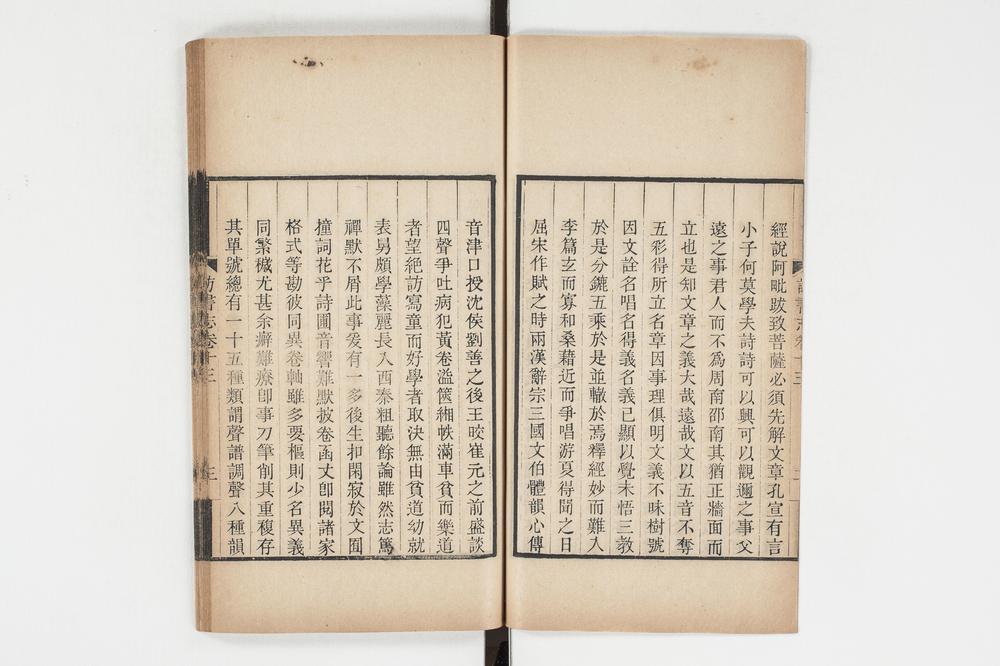 經說阿毗跋致菩薩必須先解文章孔宣有言
小子何莫學夫詩詩可以興可以觀邇之事父
遠之事君人而不為周南邵南其猶正牆面而
立也是知文章之義大哉遠哉文以五音不奪
五彩得所立名章因事理俱明文義不昧樹號
因文詮名唱名得義名義已顯以覺未悟三教
於是分鑣五乘於是並轍於焉釋經妙而難入
李篇玄而寡和桑藉近而爭唱游夏得聞之日
屈宋作賦之時兩漢辭宗三國文伯體韻心傳
音津口授沈侯劉善之後王皎崔元之前盛談
四聲爭吐病犯黃卷溢篋緗帙滿車貧而樂道
者望絕訪寫童而好學者取決無由貧道幼就
表舅頗學藻麗長入西秦粗聽餘論雖然志篤
禪默不屑此事爰有一多後生扣閑寂於文囿
撞詞花乎詩圃音響難默披卷函丈卽閱諸家
格式等勘彼同異卷軸雖多要樞則少名異義
同繁穢尤甚余癖難療卽事刀筆削其重複存
其單號總有一十五種類謂聲譜調聲八種韻
訪書志卷十三
三